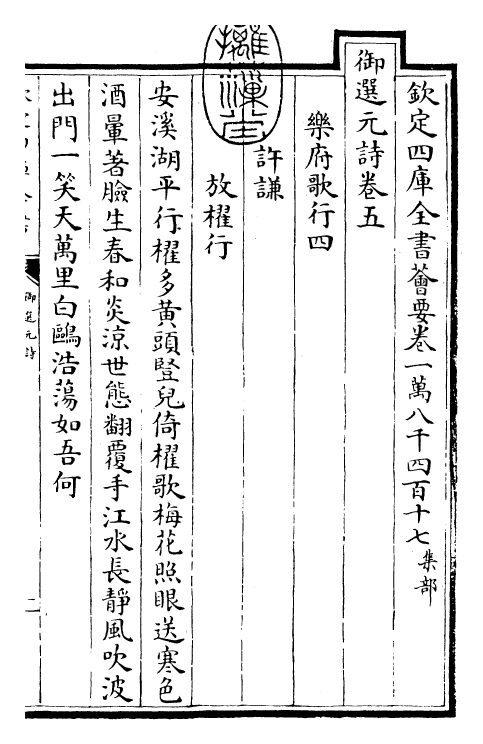 欽定四庫全書薈要卷一萬八千四百十七集部
御選元詩卷五
樂府歌行四
許謙
放櫂行
安溪湖平行櫂多黃頭豎兒倚櫂歌梅花照眼送寒色
酒暈著臉生春和炎涼世態翻覆手江水長靜風吹波
出門一笑天萬里白鷗浩蕩如吾何
御選元詩